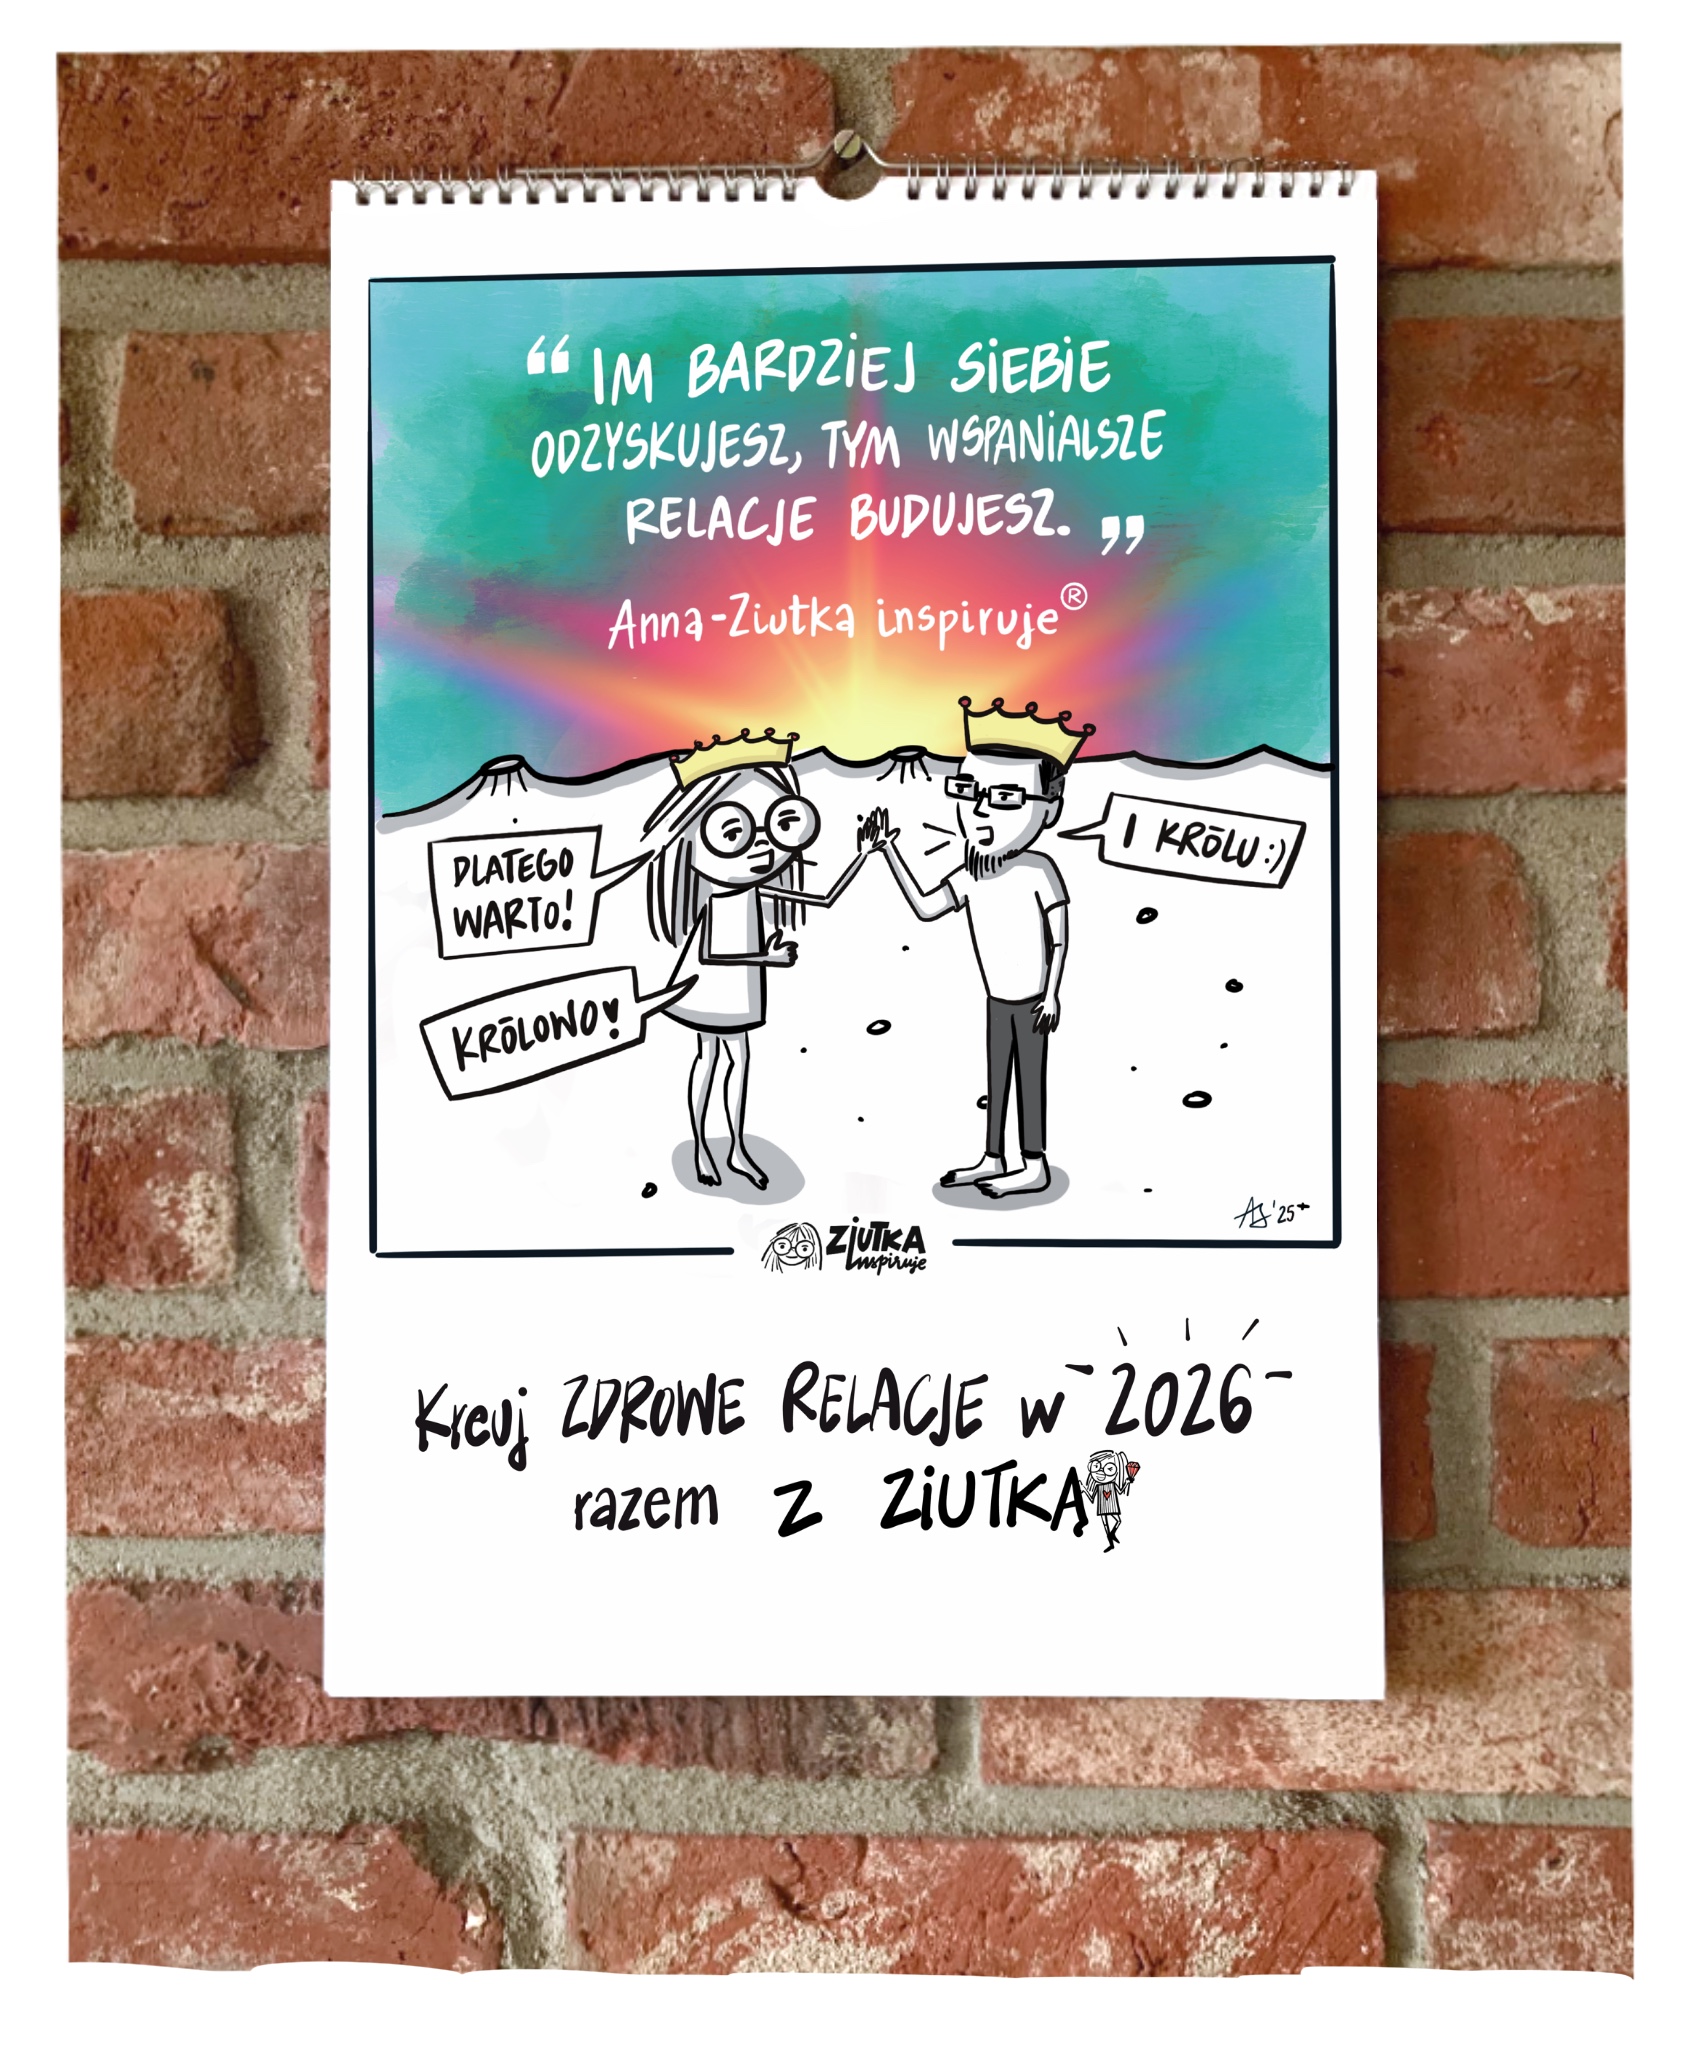 “IM BARDZIEJ SIEBIE
ODZYSKUJESZ, TYM WSPANIALSZE
RELACJE BUDUJESZ.”
Anna-Ziutka inspiruje®
DLATEGO
WARTO!
KRÓLOWO!
I KRÓLU :)
AJ '25+
ZIUTKA
inspiruje
Kreuj ZDROWE RELACJE w 2026
razem z ZIUTKĄ